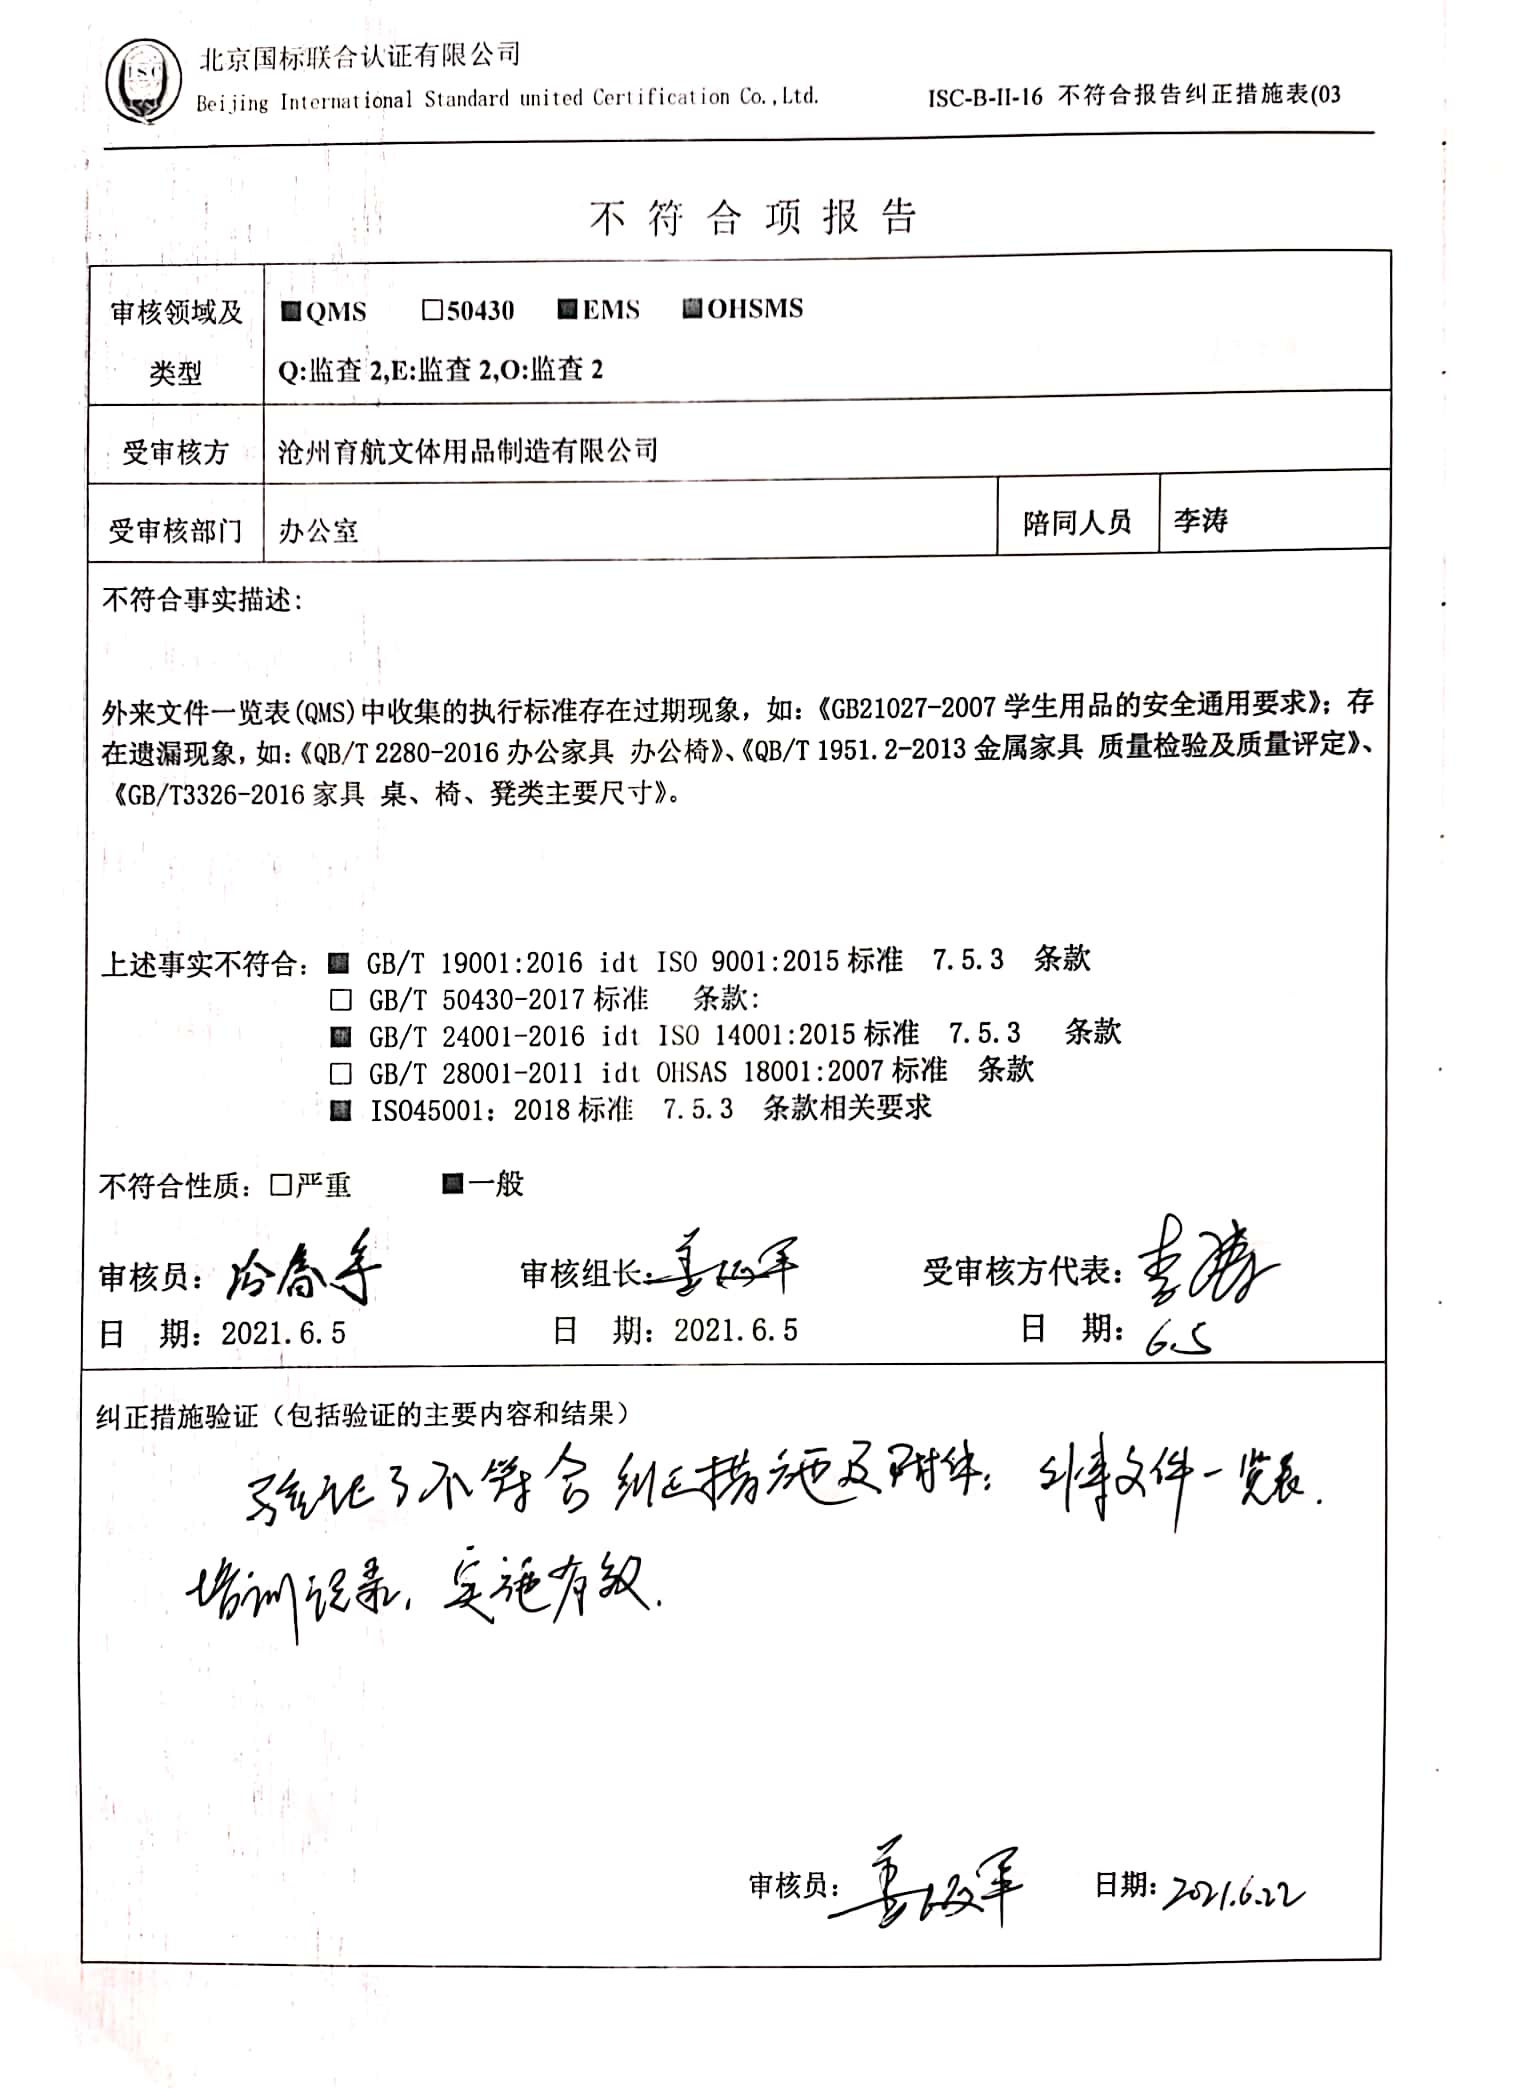 ISC
北京国标联合认证有限公司
Beijing International Standard united Certification Co.,Ltd.
ISC-B-II-16 不符合报告纠正措施表(03
不符合项报告
审核领域及类型
■QMS □50430 ■EMS ■OHSMS
Q:监查2,E:监查2,O:监查2
受审核方 沧州育航文体用品制造有限公司
受审核部门 办公室 陪同人员 李涛
不符合事实描述:
外来文件一览表(QMS)中收集的执行标准存在过期现象,如:《GB21027-2007 学生用品的安全通用要求》;存
在遗漏现象,如:《QB/T 2280-2016 办公家具 办公椅》、《QB/T 1951.2-2013 金属家具 质量检验及质量评定》、
《GB/T3326-2016 家具 桌、椅、凳类主要尺寸》。
上述事实不符合: ■ GB/T 19001:2016 idt ISO 9001:2015 标准 7.5.3 条款
□ GB/T 50430-2017 标准 条款:
■ GB/T 24001-2016 idt ISO 14001:2015 标准 7.5.3 条款
□ GB/T 28001-2011 idt OHSAS 18001:2007 标准 条款
■ ISO45001: 2018 标准 7.5.3 条款相关要求
不符合性质: □严重 ■一般
审核员: 审核组长: 受审核方代表: 李涛
日 期: 2021.6.5 日 期: 2021.6.5 日 期: 6.5
纠正措施验证(包括验证的主要内容和结果)
验证了不符合纠正措施及附件: 外来文件一览表.
培训记录, 实施有效.
审核员: 日期: 2021.6.22